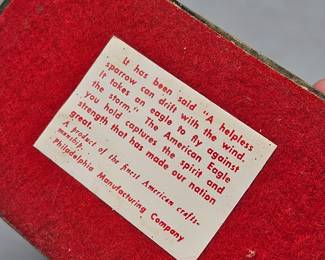 It has been said "A helpless
sparrow can drift with the wind.
It takes an eagle to fly against
the storm." The American Eagle
you hold captures the spirit and
strength that has made our nation
great.
A product of the finest American crafts-
menship.
Philadelphia Manufacturing Company